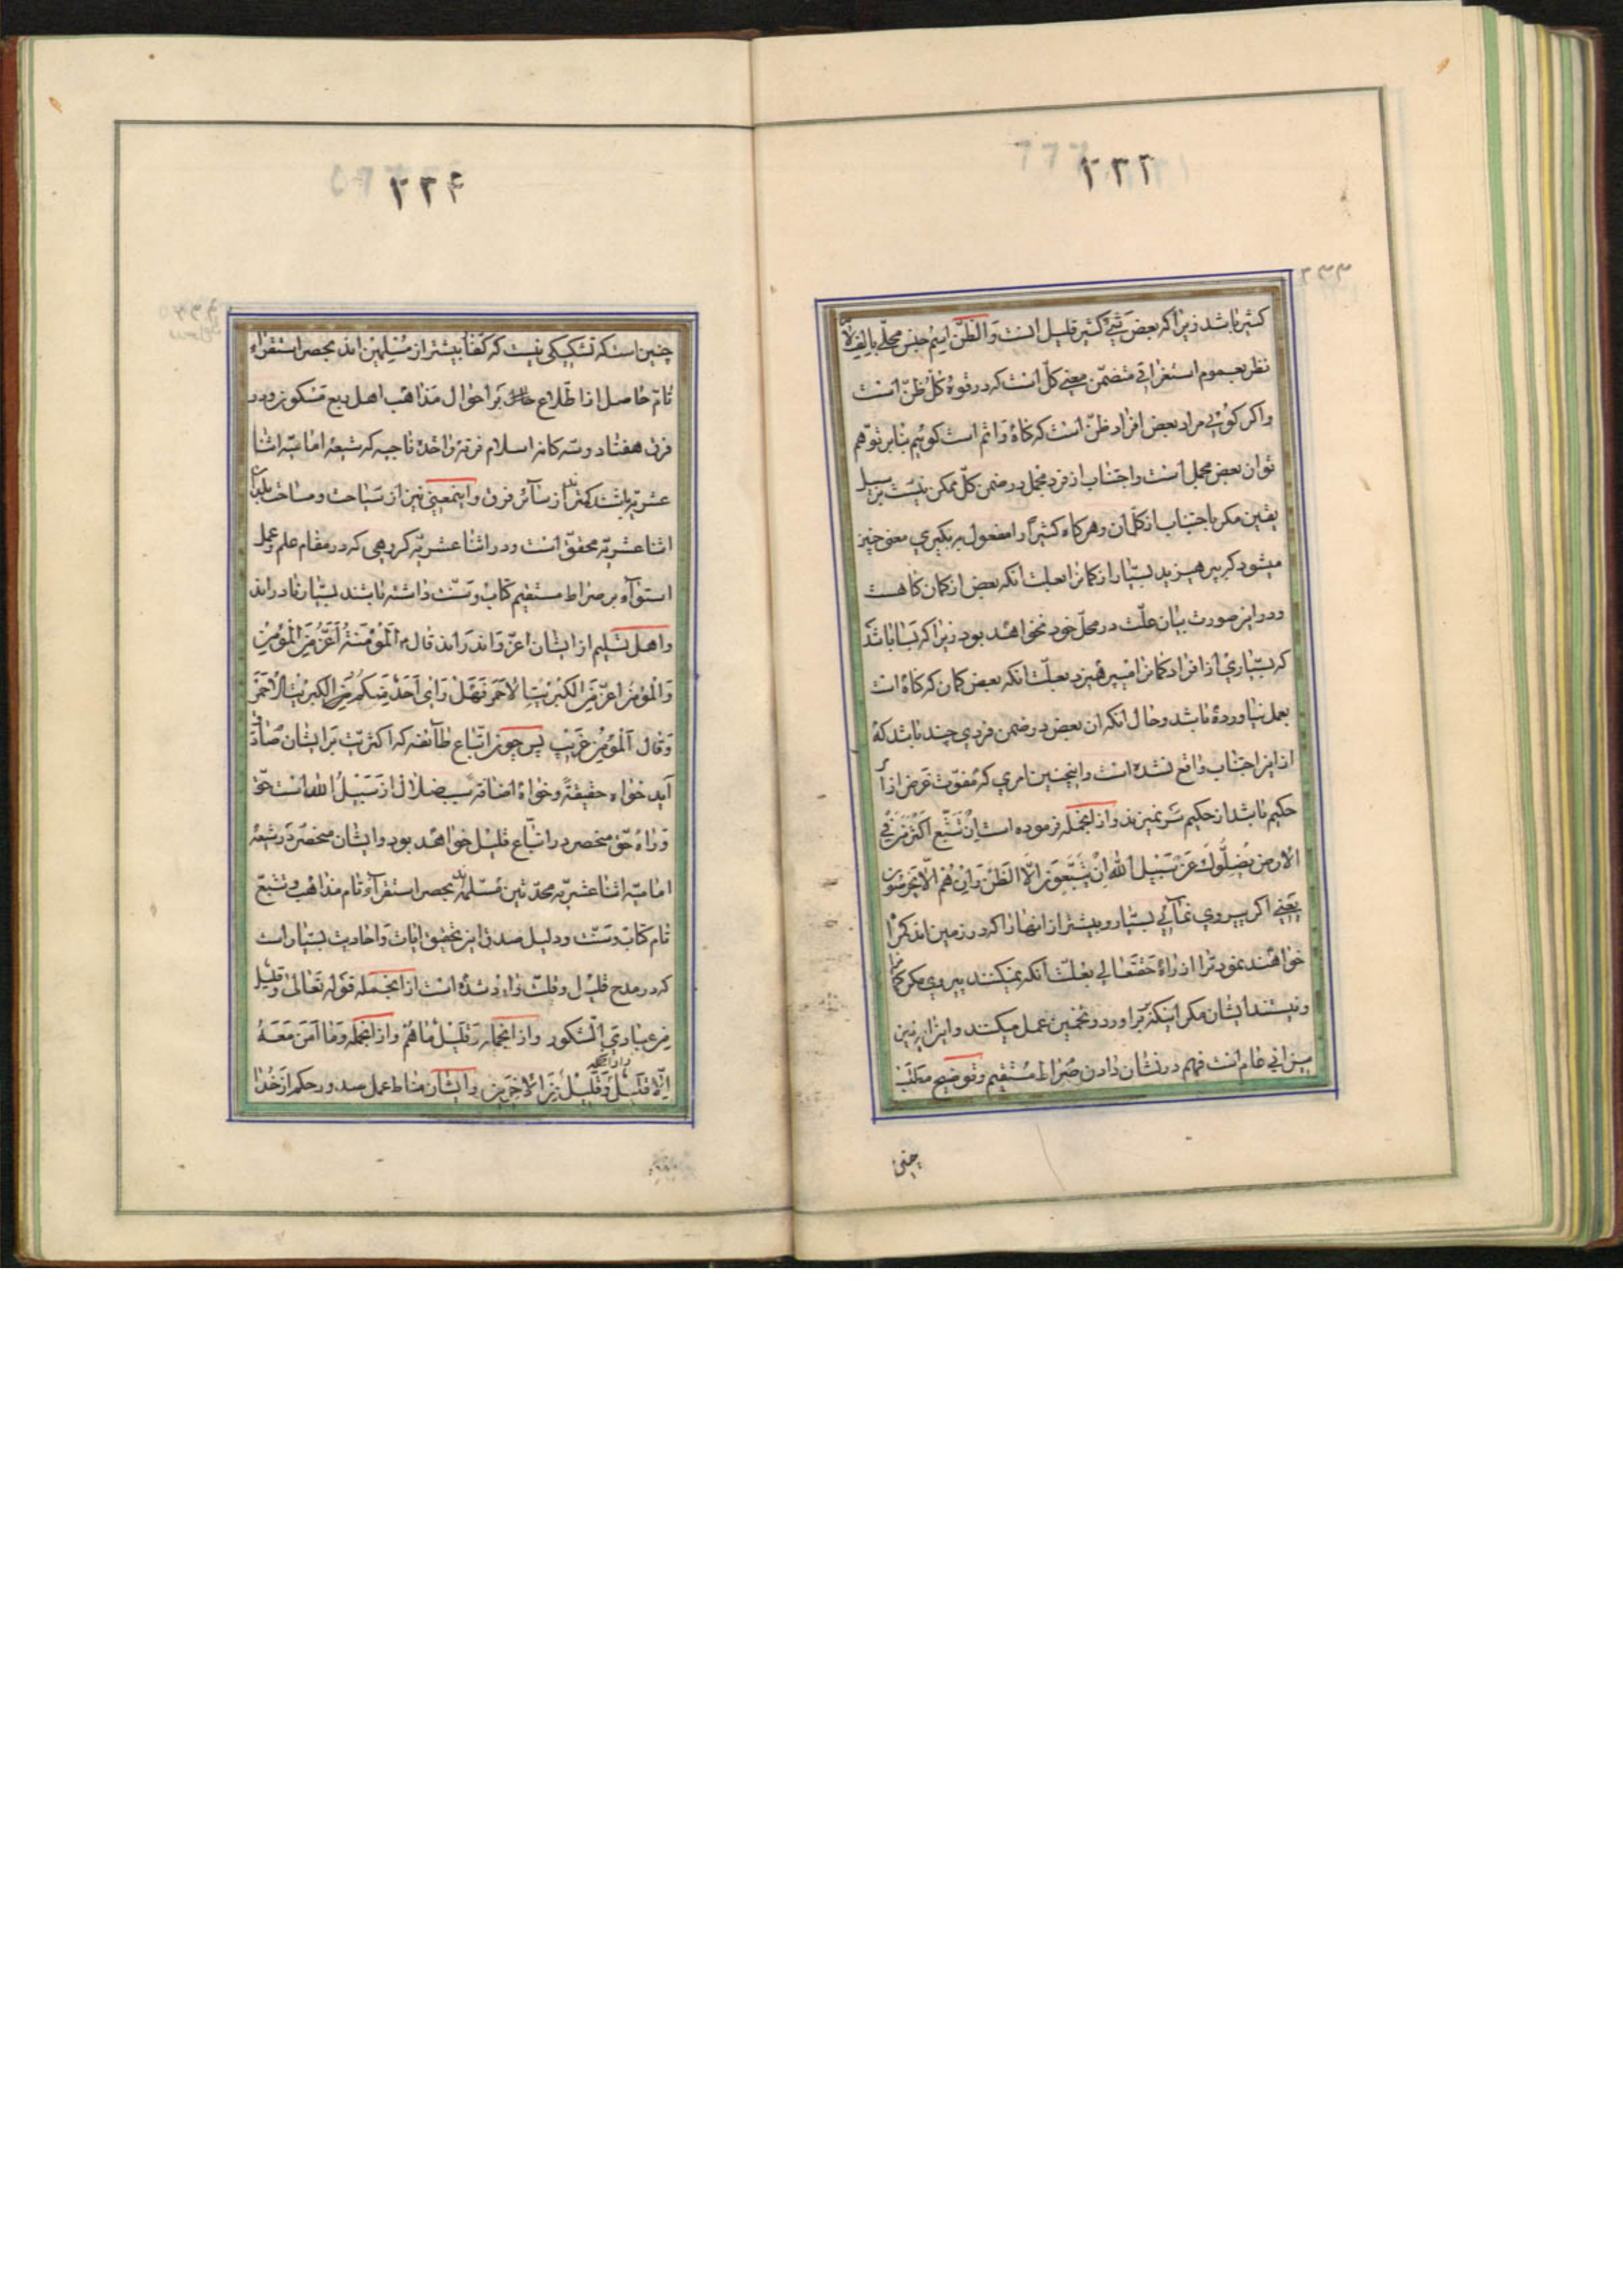 ۲۳۳
کثیر باشد زیرا که بعض شئ کثیر قلیل است والظن اسم جنس محلی بالف لام
نظر بعموم استغراقی متضمن معنی کل است که در قوه کل ظن است
واکر کوئی مراد بعض افراد ظن است که کناه واثم است کوئیم بنابر توهم
توان بعض مجمل است واجتناب از فرد مجمل در ضمن کل ممکن نیست بر سبیل
یقین مکر باجتناب از کل ان وهرکاه کثیرا را مفعول به بکیری معنی چنین
میشود که بپرهیزید بسیار از کمانرا بعلت انکه بعض از کمان کناهست
ودر این صورت بیان علت در محل خود نخواهد بود زیرا که بسا باشد
که بسیاری از افراد کمانرا بپرهیزد بعلت انکه بعض کمان که کناه است
بعمل نیاورده باشد وحال انکه ان بعض در ضمن فردی چند باشد که
از این اجتناب واقع نشده است واینچنین امری که مفوت غرض از امر
حکیم باشد از حکیم سر نمیزند وازانجمله فرموده است ان تتبع اکثر من فی
الارض یضلوک عن سبیل الله ان یتبعون الا الظن وان هم الا یخرصون
یعنی اکر پیروی نمائی بسیار وبیشتر از انها را که در زمین اند کمراه
خواهند نمود ترا از راه حقتعالی بعلت آنکه نمیکنند پیروی مکر کمانرا
ونیستند ایشان مکر اینکه براورد وتخمین عمل میکنند واین را به زمین
میزانی عام است فهم در نشان دادن صراط مستقیم وتوضیح مطلب
چنین
۲۳۴
چنین است که تشکیکی نیست که کفار بیشتر از مسلمین اند بحصر استقراء
تام حاصل از اطلاع بر احوال مذاهب اهل ربع مسکون ودر
فرق هفتاد وسه کانه اسلام فرقه واحده ناجیه که شیعه امامیه اثنا
عشریه باشند کمترند از سائر فرق واینمعنی نیز از سیاحت ومساحت بلدان
اثنا عشریه محقق است ودر اثنا عشریه کروهی که در مقام علم وعمل
استواء بر صراط مستقیم کتاب وسنت داشته باشند بسیار نادراند
واهل تسلیم از ایشان اعز واندراند قال ع المؤمنة أعز من المؤمن
والمؤمن اعز من الکبریت الاحمر فهل رای أحد منکم من الکبریت الاحمر
وقال المؤمن غریب پس چون اتباع طائفه که اکثریت بر ایشان صادق
آید خواه حقیقة وخواه اضافة سبب ضلال از سبیل الله است حق
وراه حق منحصر در اتباع قلیل خواهد بود وایشان منحصر در شیعه
امامیه اثنا عشریه محدثین مسلمه اند بحصر استقراء تام مذاهب وتتبع
تام کتاب وسنت ودلیل صدق این تحقیق ایات واحادیث بسیار است
که در مدح قلیل وقلت وارد شده است ازانجمله قوله تعالی وقلیل
من عبادی الشکور وازانجمله وقلیل ما هم وازانجمله وما آمن معه
الا قلیل وازانجمله وقلیل من الاخرین وایشان مناط عمل صدور حکم از خدا